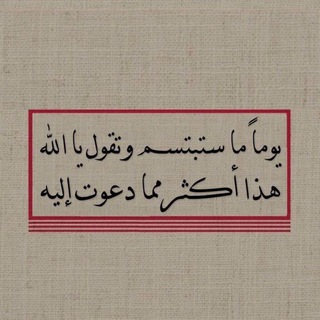 يوماً ما ستبتسم وتقول يا الله
هذا أكثر مما دعوت إليه